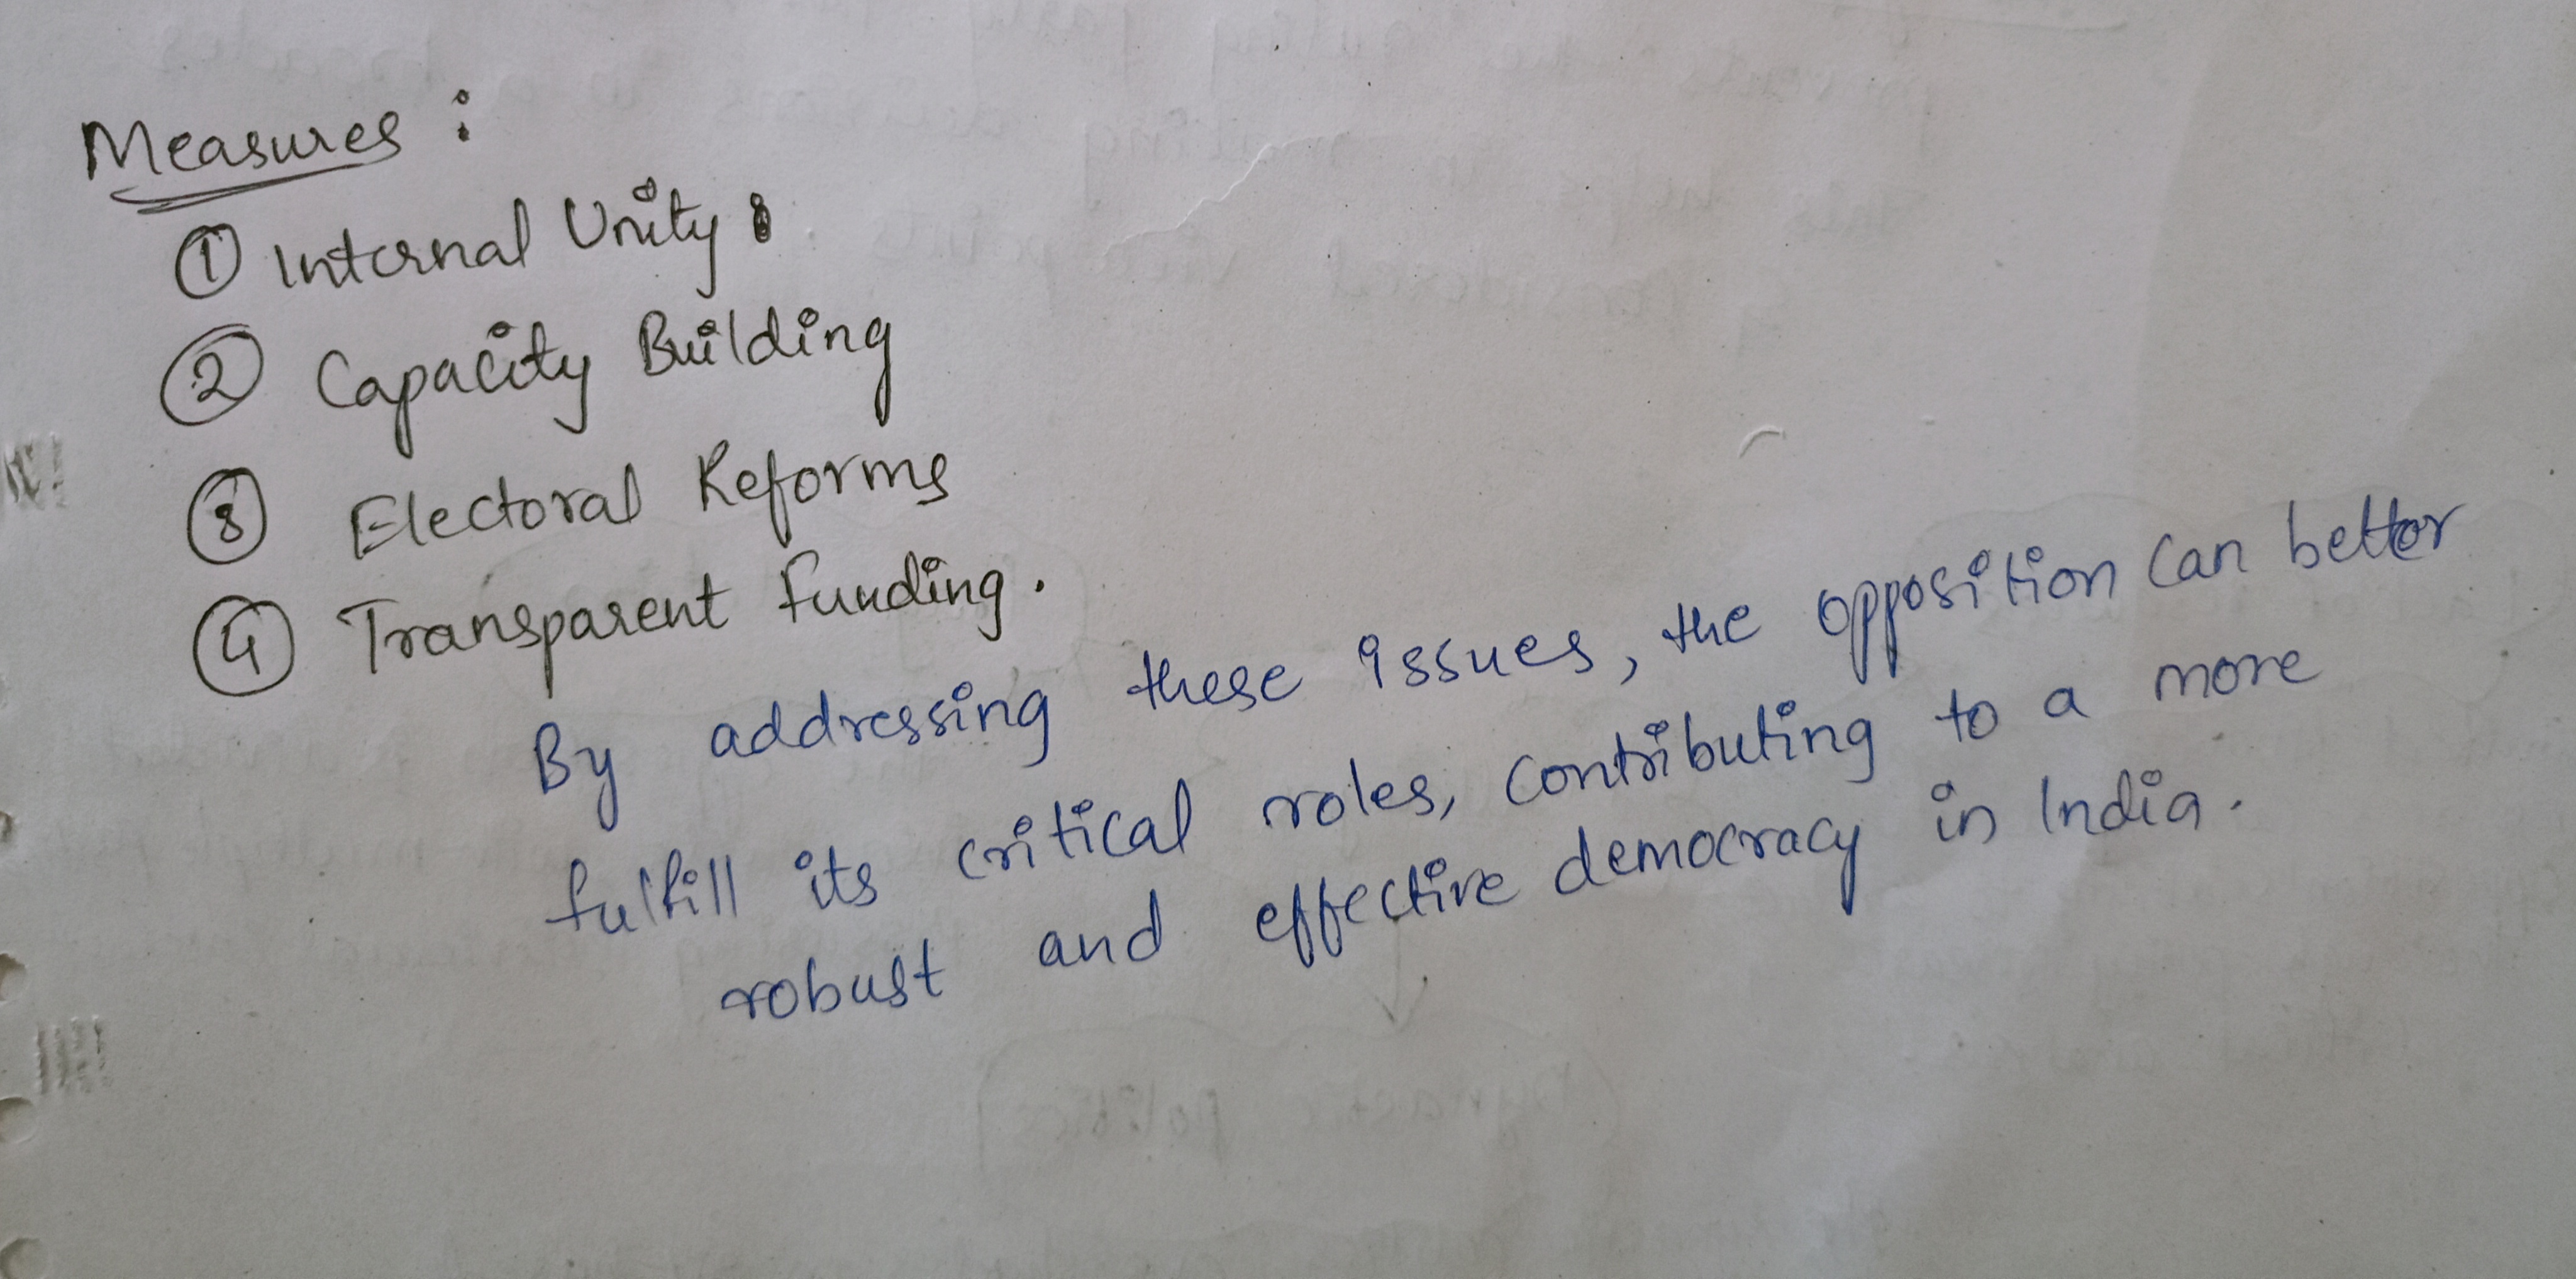 Measures :
① Internal Unity :
② Capacity Building
③ Electoral Reforms
④ Transparent Funding.
By addressing these issues, the opposition can better
fulfill its critical roles, contributing to a more
robust and effective democracy in India.